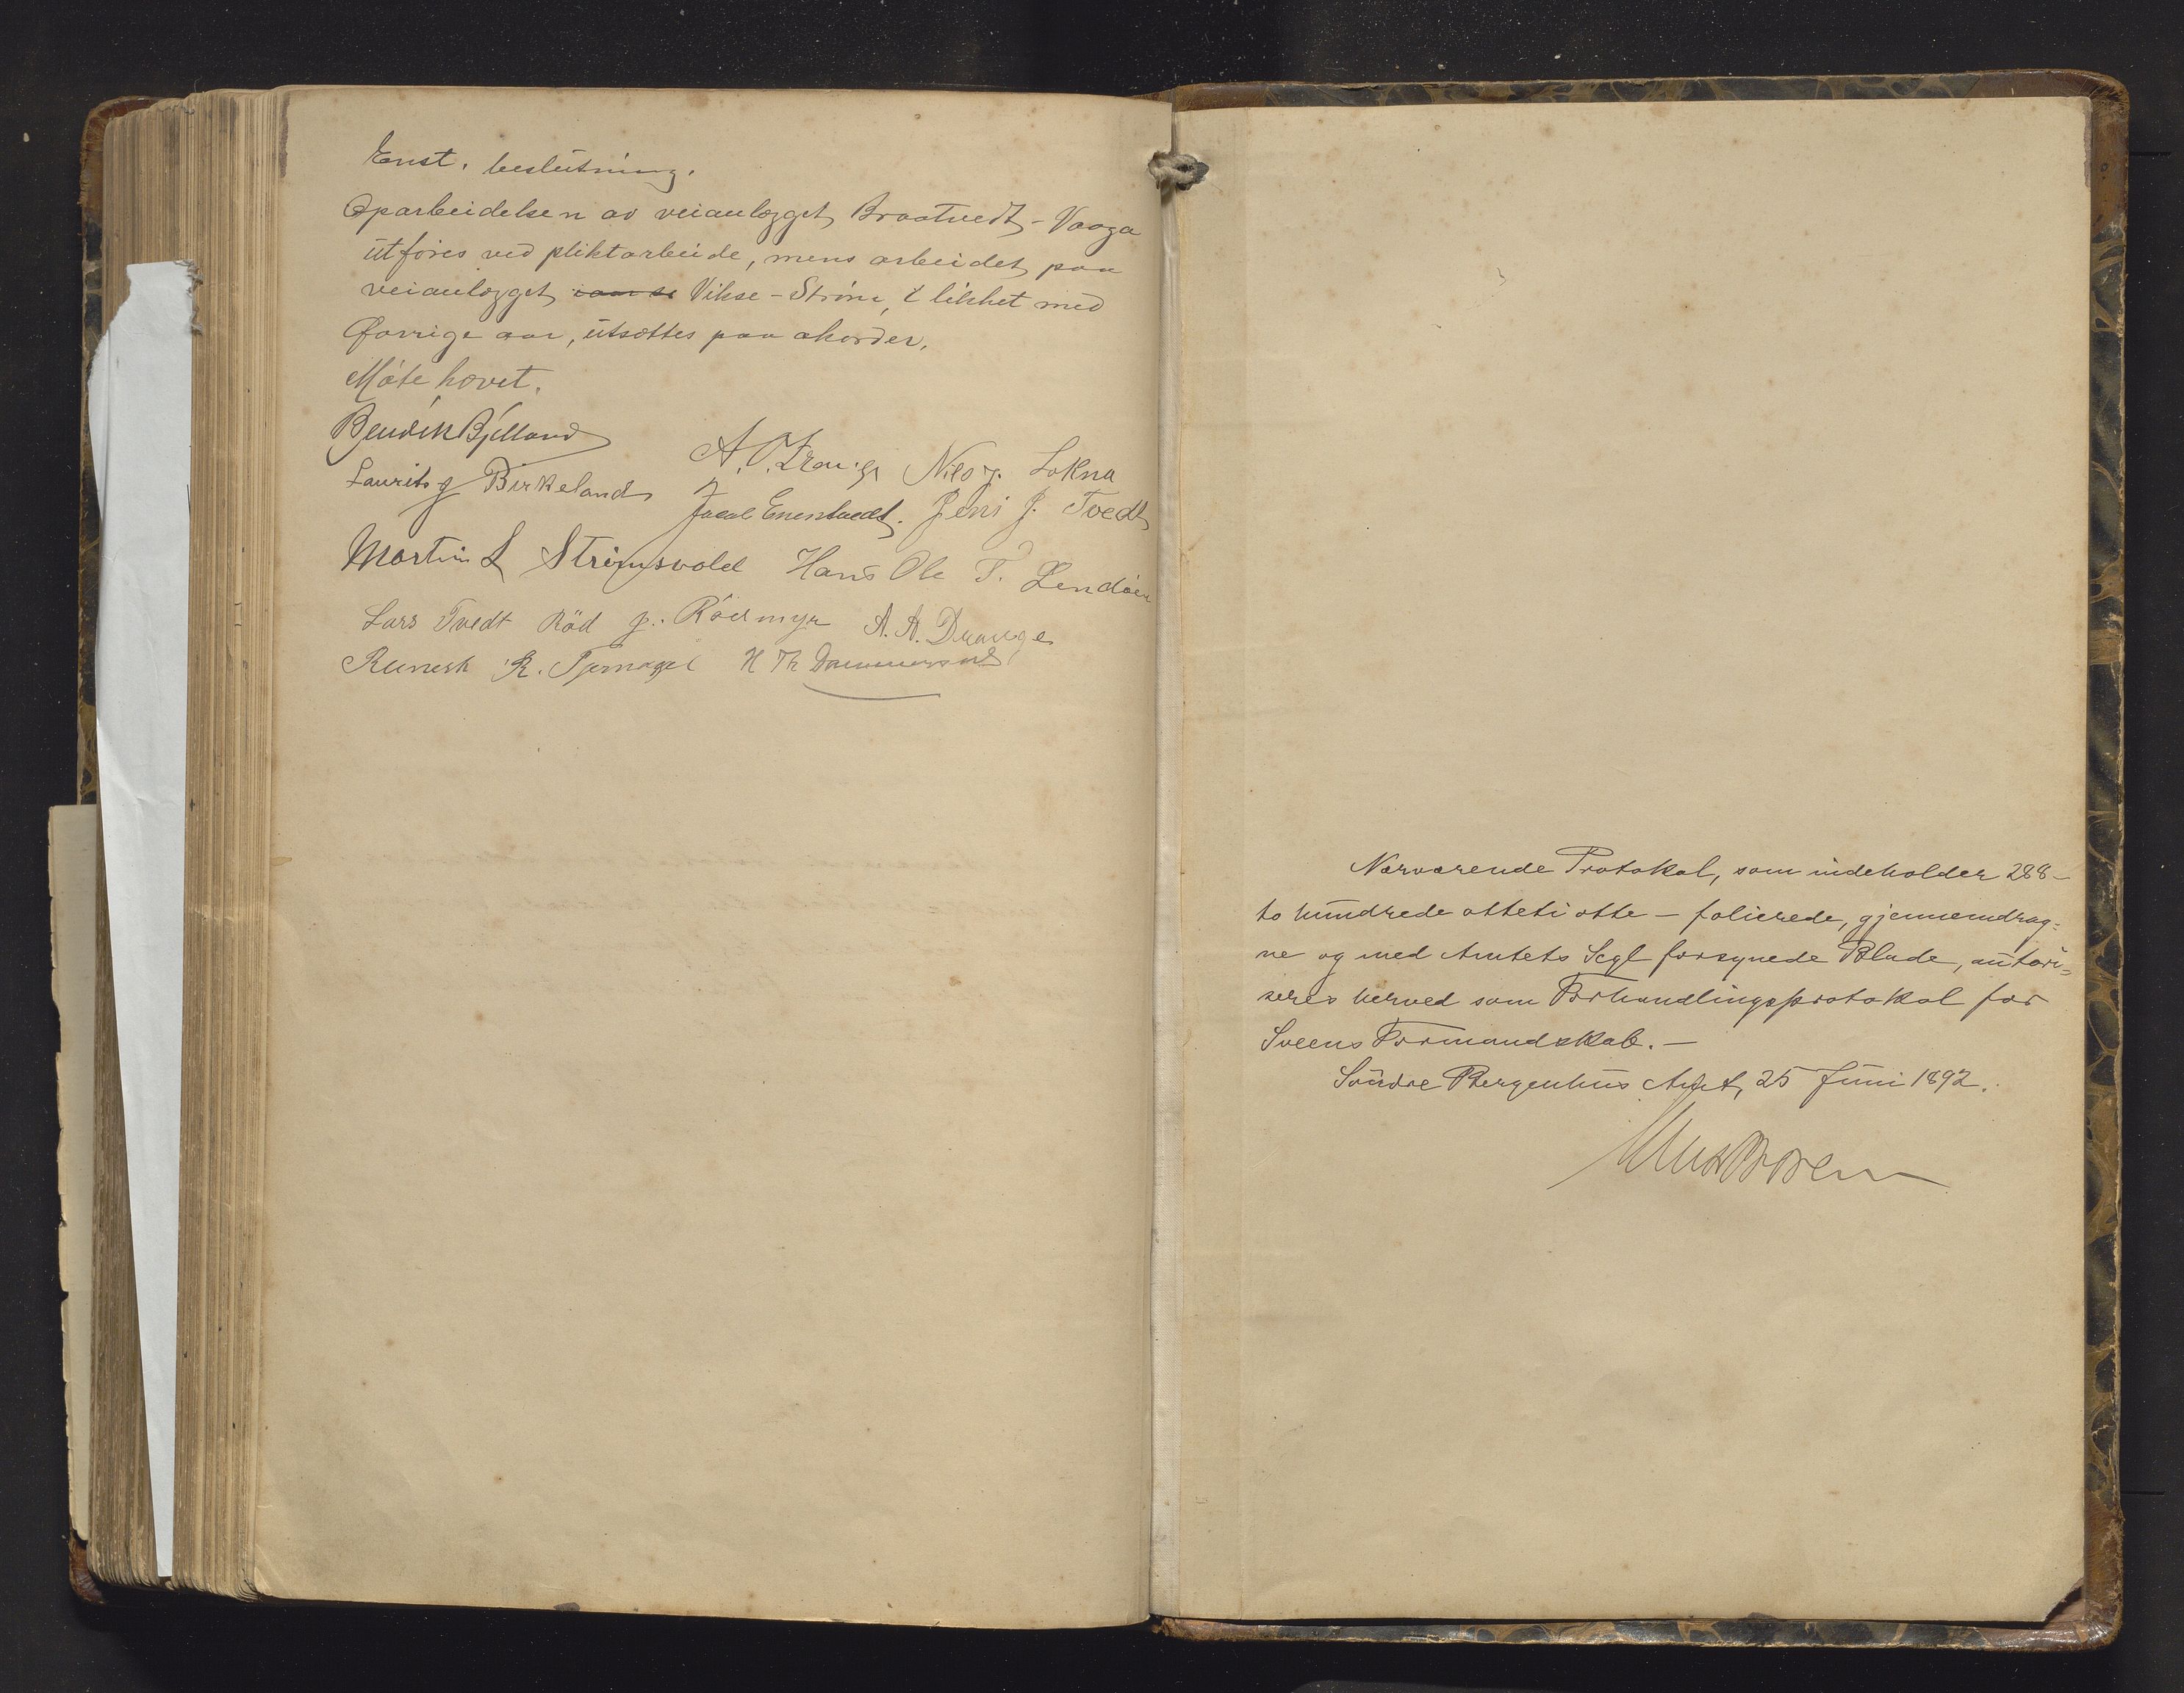 Enst. beslutning.
Oparbeidelsen av veianlægget Braatvedt - Vaaga
utføres ved pliktarbeide, mens arbeidet paa
veianlægget Vikse - Strøm, i likhet med
forrige aar, utsættes paa akorder.
Møte hævet.
Bendik Bjelland
A. Nils J. Lokna
Laurits J Birkeland
Jacob Enestvedt. Jens J. Tvedt
Martin L Strømsvold Hans Ole T. Lendøen
Lars Tvedt Röd J. Röedmyr A. A. Drange
R. Tjernagel H Th Dammersund
Nærværende Protokol, som indeholder 288 -
to hundrede otteti otte - folierede, gjennemdrag=
ne og med Amtets Segl forsynede Blade, autori=
seres herved som Forhandlingsprotokol for
Sveens Formandskab. -
Søndre Bergenhus Amt, 25 Juni 1892.